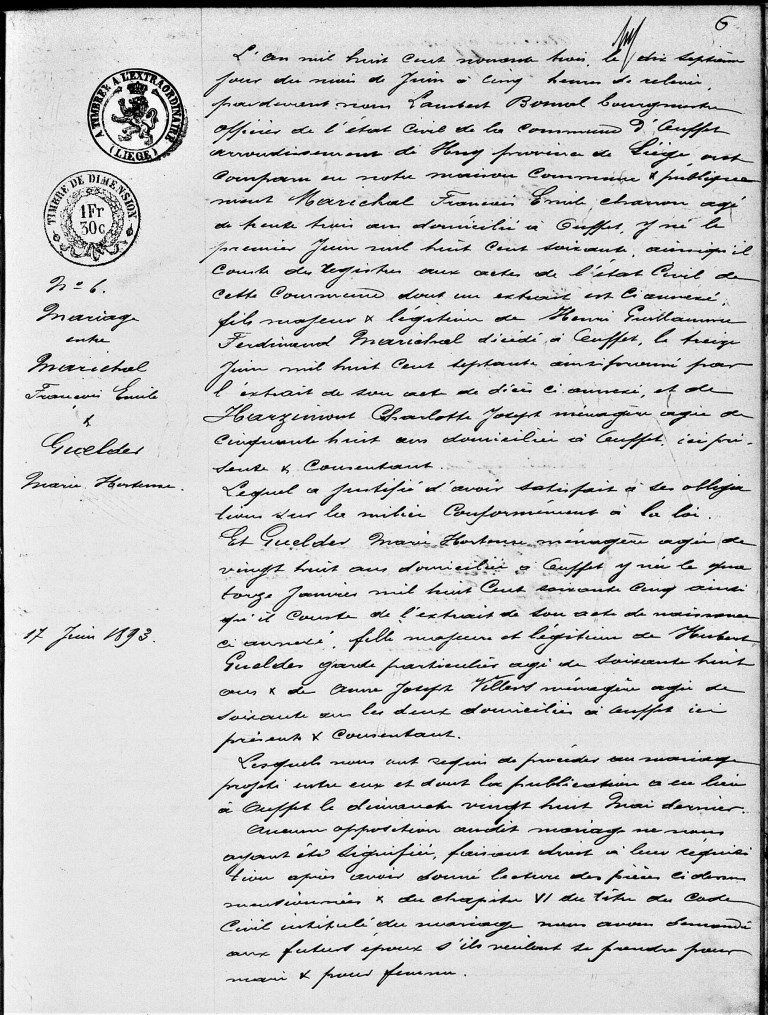 6
L'an mil huit cent nonante trois, le dix septième
jour du mois de Juin à cinq heures de relevée,
pardevant nous Lambert Bonmal bourgmestre
officier de l'état civil de la commune d'Ouffet
arrondissement de Huy province de Liège, ont
comparu en notre maison Commune & publique
ment Maréchal Francois Emile charron agé
de trente trois ans domicilié à Ouffet, y né le
premier Juin mil huit cent soixante, ainsi qu'il
conste des registres aux actes de l'état Civil de
cette Commune dont un extrait est ci annexé,
fils majeur & légitime de Henri Guillaume
Ferdinand Maréchal décédé à Ouffet, le treize
Juin mil huit cent septante ainsi prouvé par
l'extrait de son acte de décès ci annexé, et de
Harzimont Charlotte Joseph ménagère agée de
cinquante huit ans domiciliée à Ouffet, ici pré-
sente & consentant.
Lequel a justifié d'avoir satisfait à ses obliga
tions sur la milice conformément à la loi.
Et Guelder Marie Hortense ménagère agée de
vingt huit ans domiciliée à Ouffet y née le qua
torze Janvier mil huit cent soixante cinq ainsi
qu'il conste de l'extrait de son acte de naissance
ci annexé, fille majeure et légitime de Hubert
Guelder garde particulier agé de soixante huit
ans & de Anne Joseph Villers ménagère agée de
soixante ans les deux domiciliés à Ouffet ici
présents & consentant.
Lesquels nous ont requis de procéder au mariage
projeté entre eux et dont la publication a eu lieu
à Ouffet le dimanche vingt huit Mai dernier.
Aucune opposition audit mariage ne nous
ayant été signifiée, faisant droit à leur réquisi
tion après avoir donné lecture des pièces ci dessus
mentionnées & du chapitre VI du titre du Code
Civil intitulé du mariage nous avons demandé
aux futurs époux s'ils veulent se prendre pour
mari & pour femme.
A TIMBRER A L'EXTRAORDINAIRE
(LIEGE)
TIMBRE DE DIMENSION
1 Fr
30 c
No 6.
Mariage
entre
Maréchal
Francois Emile
&
Guelder
Marie Hortense.
17 Juin 1893.